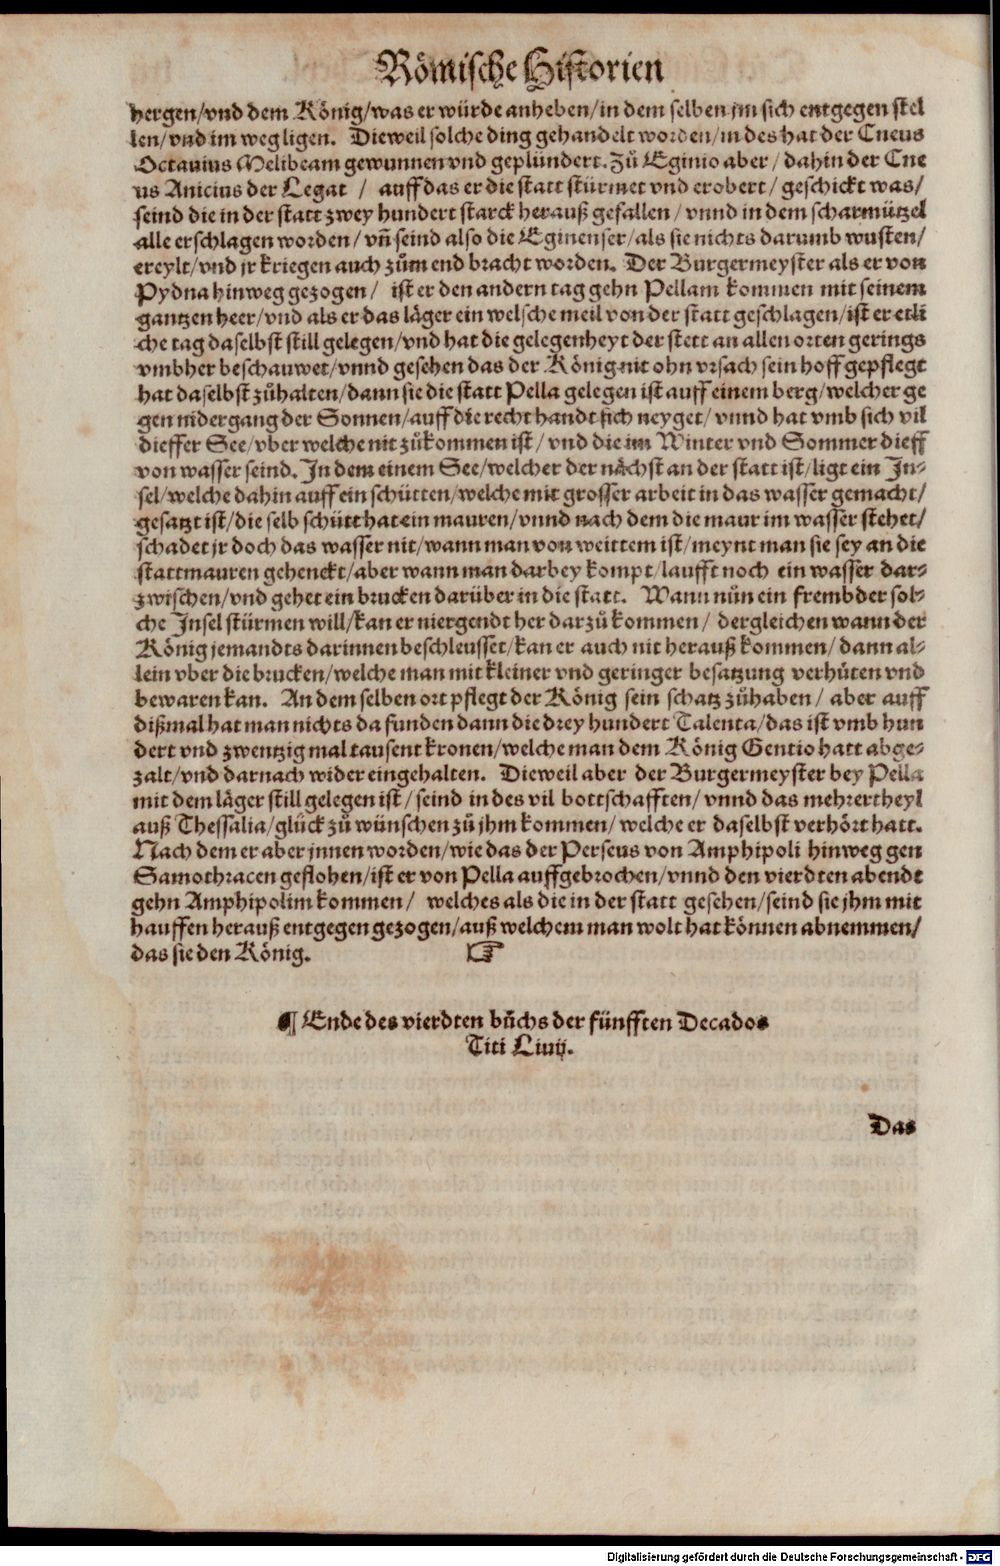 Römische Historien
hergen/vnd dem König/was er würde anheben/in dem selben jm sich entgegen stel
len/vnd im weg ligen. Dieweil solche ding gehandelt worden/in des hat der Cneus
Octauius Melibeam gewunnen vnd geplündert. Zů Eginio aber / dahin der Cne
us Anicius der Legat / auff das er die statt stürmet vnd erobert / geschickt was/
seind die in der statt zwey hundert starck herauß gefallen / vnnd in dem scharmützel
alle erschlagen worden / vñ seind also die Eginenser/als sie nichts darumb wusten/
ereylt/vnd jr kriegen auch zům end bracht worden. Der Burgermeyster als er von
Pydna hinweg gezogen / ist er den andern tag gehn Pellam kommen mit seinem
gantzen heer/vnd als er das läger ein welsche meil von der statt geschlagen/ist er etli
che tag daselbst still gelegen/vnd hat die gelegenheyt der stett an allen orten gerings
vmbher beschauwet/vnnd gesehen das der König nit ohn vrsach sein hoff gepflegt
hat daselbst zůhalten/dann sie die statt Pella gelegen ist auff einem berg/welcher ge
gen nidergang der Sonnen/auff die recht handt sich neyget/vnnd hat vmb sich vil
dieffer See/vber welche nit zů kommen ist / vnd die im Winter vnd Sommer dieff
von wasser seind. In dem einem See/welcher der nächst an der statt ist/ligt ein In⸗
sel/welche dahin auff ein schütten/welche mit grosser arbeit in das wasser gemacht/
gesatzt ist/die selb schütt hat ein mauren/vnnd nach dem die maur im wasser stehet/
schadet jr doch das wasser nit/wann man von weittem ist/meynt man sie sey an die
stattmauren gehenckt/aber wann man darbey kompt/laufft noch ein wasser dar⸗
zwischen/vnd gehet ein brucken darüber in die statt. Wann nůn ein frembder sol⸗
che Insel stürmen will/kan er niergendt her darzů kommen / dergleichen wann der
König jemandts darinnen beschleusset/kan er auch nit herauß kommen/dann al⸗
lein vber die brucken/welche man mit kleiner vnd geringer besatzung verhüten vnd
bewaren kan. An dem selben ort pflegt der König sein schatz zůhaben / aber auff
dißmal hat man nichts da funden dann die drey hundert Talenta/das ist vmb hun
dert vnd zwentzig mal tausent kronen/welche man dem König Gentio hatt abge⸗
zalt/vnd darnach wider eingehalten. Dieweil aber der Burgermeyster bey Pella
mit dem läger still gelegen ist / seind in des vil bottschafften / vnnd das mehrertheyl
auß Thessalia/glück zů wünschen zů jhm kommen/welche er daselbst verhört hatt.
Nach dem er aber jnnen worden/wie das der Perseus von Amphipoli hinweg gen
Samothracen geflohen/ist er von Pella auffgebrochen/vnnd den vierdten abendt
gehn Amphipolim kommen / welches als die in der statt gesehen/seind sie jhm mit
hauffen herauß entgegen gezogen/auß welchem man wolt hat können abnemmen/
das sie den König. ☞
¶ Ende des vierdten bůchs der fünfften Decados
Titi Liuij.
Das
Digitalisierung gefördert durch die Deutsche Forschungsgemeinschaft - DFG